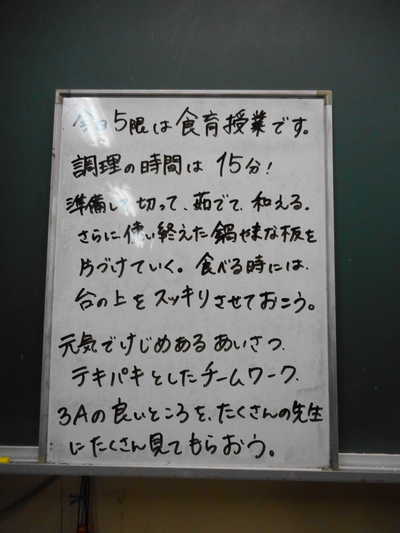 今日5限は食育授業です。
調理の時間は15分!
準備して切って、茹でて、和える。
さらに使い終えた鍋やまな板を
片づけていく。食べる時には、
台の上をスッキリさせておこう。
元気でけじめあるあいさつ、
テキパキとしたチームワーク、
3Aの良いところを、たくさんの先生
にたくさん見てもらおう。